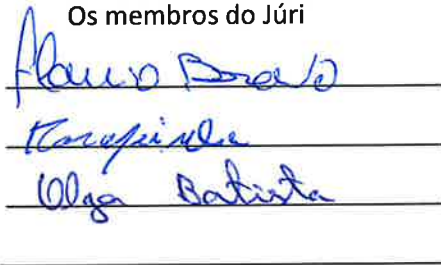 Os membros do Júri
Flavio Bravo
Olga Batista